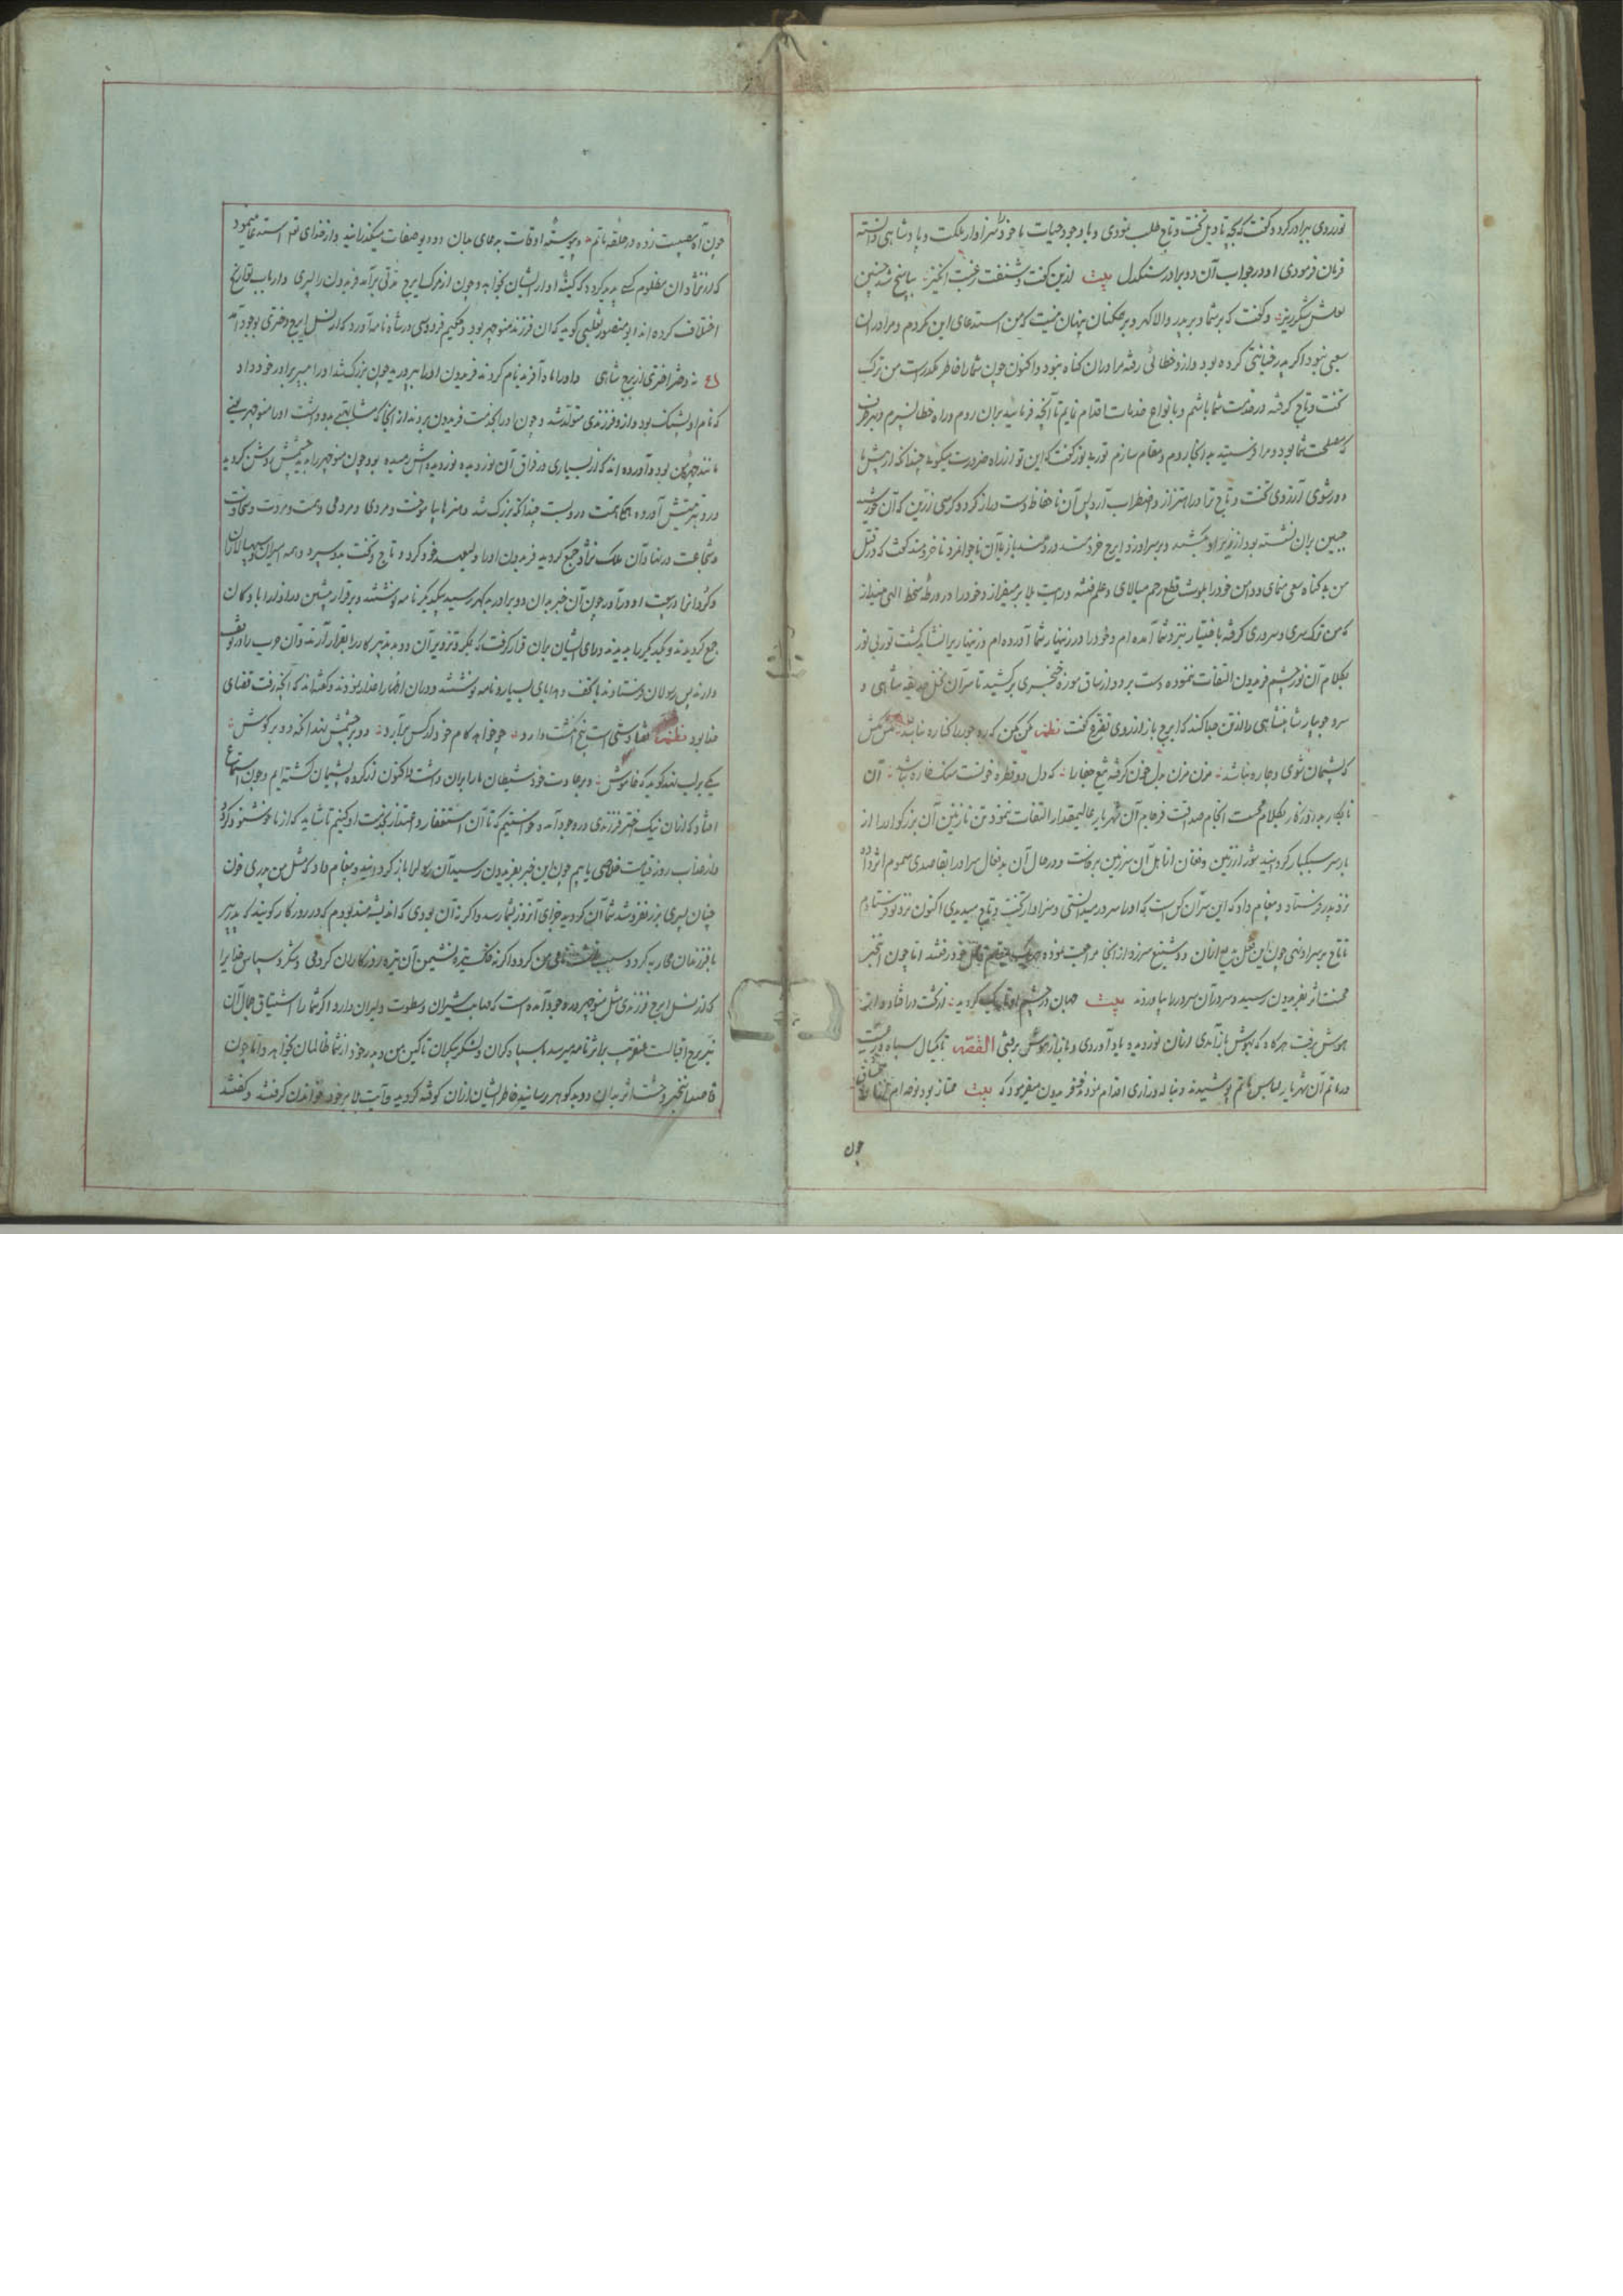 تور روی ببرادر کرد و گفت که بچه تاویل تخت و تاج طلب نمودی و با وجود حیات ما خود را سزاوار ملکت و پادشاهی دانسته
فرمان فرمودی او در جواب آن دو برادر سنگدل بیت ازین گفت و شنفت رغبت انگیز بپاسخ شد چنین
لعلش شکرریز و گفت که بر شما و بر پدر والاگهر و بر همکنان پنهان نیست که من استدعای این نکردم و مرا در ان
سعیی نبود اگر پدر خیانتی کرده بود و ازو خطائی رفته مرا در ان گناه نبود و اکنون چون شما را خاطر مکدر است من ترک
تخت و تاج گرفته در خدمت شما باشم و بانواع خدمات اقدام نمایم تا آنچه فرمائید بران روم و راه خطا نسپرم و بهر طرف
که مصلحت شما بود و مرا فرستید بدانجا روم و مقام سازم تور بد گفت که این تو از راه ضرورت میگوئی چندانکه از پیش ما
دور شوی آرزوی تخت و تاج ترا در اهتزاز و اضطراب آرد پس آن ناحفاظ دست دراز کرد و کرسی زرین که آن خورشید
جبین بران نشسته بود از زیر او بکشید و بر سر او زد و ایرج خردمند دردمند باز بآن ناجوانمرد ناخردمند گفت که در قتل
من بیگناه سعی منمای و دامن خود را بلوث قطع رحم میالای و علم فتنه و رایت بلا بر میفراز و خود را در ورطه سخط الهی مینداز
که من ترک سری و سروری گرفته باختیار نزد شما آمده ام و خود را در زینهار شما آورده ام و زینهاریرا نشاید کشت تور بی نور
بکلام آن نور چشم فریدون التفات ننموده دست برد و از ساق موزه خنجری برکشید تا سر آن نخل حدیقه شاهی و
سرو جویبار شاهنشاهی را از تن جدا کند که ایرج باز از روی تضرع گفت نظم مکن مکن که ره جور را کناره نباشد مکش مکش
که پشیمان شوی و چاره نباشد مزن مزن بدل خون گرفته تیغ جفا را که دل دو قطره خونست سنگ خاره نباشد آن
نابکار بد روزگار بکلام محبت انجام صداقت فرجام آن شهریار عالیمقدار التفات ننمود تن نازنین آن بزرگوار را از
بار سر سبکبار گردانید شور از زمین و فغان از اهل آن سرزمین برخاست و در حال آن بدفعال سر او را بقاصدی سموم اثر داده
نزد پدر فرستاد و پیغام داد که این سر آن کس است که او را سرور میدانستی و سزاوار تخت و تاج میدیدی اکنون نزد تو فرستادم
تا تاج بر سر او نهی چون این فعل شنیع از آن دو شنیع سر زد از آنجا مراجعت نموده رفتند اما چون این خبر
محنت اثر بفریدون رسید و سر آن سرور را بیاوردند بیت جهان در چشم او تاریک گردید ز تخت در افتاد و از
هوش برفت هرگاه که بهوش باز آمدی از آن نوردیده یاد آوردی و باز از هوش برفتی القصه تا یکسال سپاه و رعیت
در ماتم آن شهریار لباس ماتم پوشیدند و بناله و زاری اقدام نمودند فریدون میفرمود که بیت ممتاز بود نوحه ام از نالهٔ همگنان
چون
چون آن مصیبت زده در حلقه ماتم و پیوسته اوقات بدعای بجان دو دیوصفات میگذرانید و از خدای تعالی استدعا مینمود
که از نژاد آن مظلوم کسی پدید کرده که کینهٔ او از ایشان بخواهد و چون از مرگ ایرج مدتی برآمد فریدون را پسری و ارباب تواریخ
اختلاف کرده اند ابو منصور ثعلبی گوید که آن فرزند منوچهر بود و حکیم فردوسی در شاه نامه آورد که از نسل ایرج دختری بوجود آمد
نه دختر اختری از برج شاهی و او را ماه آفرید نام کردند فریدون او را بپرورید چون بزرگ شد او را بپسر برادر خود داد
که نام او پشنگ بود و ازو فرزندی متولد شد و چون او را بخدمت فریدون بردند از آنجا که مشابهتی بدو داشت او را منوچهر یعنی
مانند چهر من بود و آورده اند که از بسیاری در فراق آن نوردیده نور دیده اش رمیده بود چون منوچهر را بدید چشمش روشن گردید
و در تربیتش آورده همگی همت در و بست چندانکه بزرگ شد و هنرها بیاموخت و مردی و مردمی و همت و مروت و سخاوت
و شجاعت در نهاد آن ملک نژاد جمع گردید فریدون او را ولیعهد خود کرد و تاج و تخت بدو سپرد و همه امیران و سپهسالاران
و گردانرا در بیعت او در آورد چون آن خبر بدان دو برادر بدگهر رسید بیکدیگر نامه نوشتند و برقرار پیشین در اذربادگان
جمع گردیدند و یکدیگر را بدیدند و رای ایشان بران قرار گرفت که بمکر و تزویر آن دو بدتدبیر کار را بقرار آرند و آن حرب را در توقف
دارند پس رسولان فرستادند با تحف و هدایای بسیار و نامه نوشتند و در ان اظهار اعتذار نمودند و گفته اند که آنچه رفت قضای
خدا بود نظم قضا دستی است پنج انگشت دارد چو خواهد کام خود از کس برآرد دو بر چشمش نهد آنکه دو بر گوش
یکی بر لب نهد گوید که خاموش و بر عادت خود شیطان ما را بران داشت و اکنون از کرده پشیمان گشته ایم و چون استماع
افتاد که از ان نیک اختر فرزندی در وجود آمده خواستیم که تا آن استغفار و اعتذار بخدمت او کنیم تا شاید که از ما خوشنود گردد
و از عذاب روز قیامت خلاصی یابیم چون این خبر بفریدون رسید آن رسولرا باز گردانید و پیغام داد که مثل من پدری خون
چنان پسری بزر نفروشد شما آن کردید جزای آن زود بشما رسد و اگر نه آن بودی که اندیشه مند بودم که در روزگار گویند که پدر پیر
با فرزندان محاربه کرد و سبب من گردد و اگر نه خاک تیره نشیمن آن تیره روزگاران کردمی و شکر و سپاس خدایرا
که از نسل ایرج فرزندی مثل منوچهر در وجود آمده است که مهابت شیران و سطوت دلیران دارد و اگر شما را اشتیاق جمال آن
نیر برج اقبالست عنقریب بر اثر نامه میرسد با سپاه گران و لشکر بیکران تا کین من و پدر خود از شما ظالمان بخواهد و اما چون
قاصد این خبر وحشت اثر بدان دو بدگوهر رسانید خاطر ایشان از ان کوفته گردید و آیت بلا بر خود خواندن گرفتند و گفتند